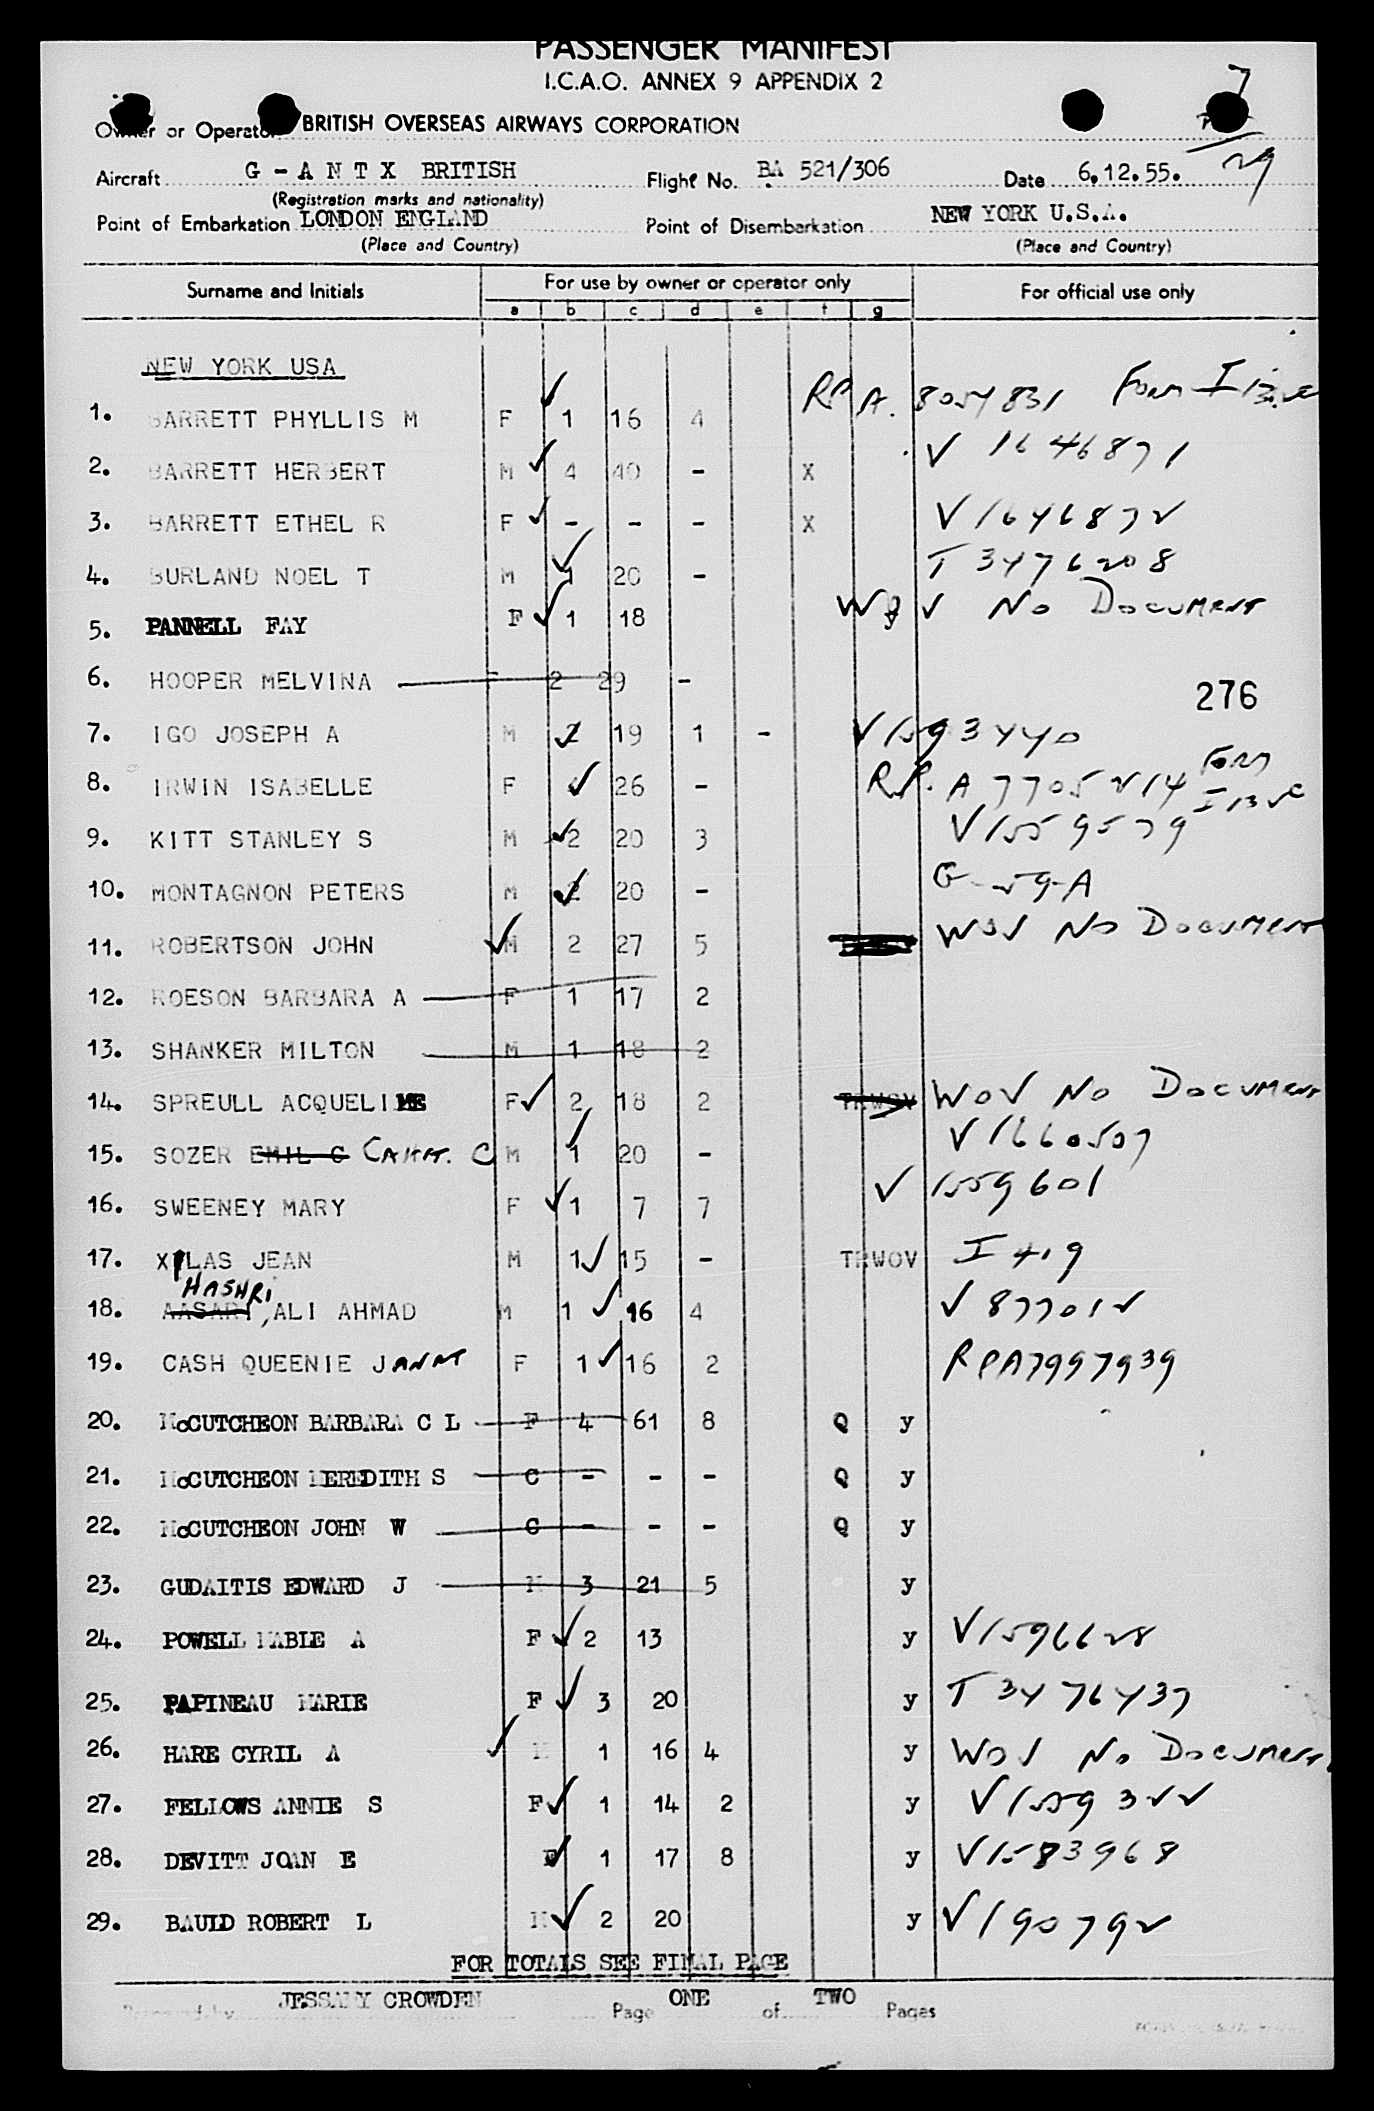 PASSENGER MANIFEST
I.C.A.O. ANNEX 9 APPENDIX 2
7
Owner or Operator BRITISH OVERSEAS AIRWAYS CORPORATION
29
Aircraft G - A N T X BRITISH Flight No. BA 521/306 Date 6.12.55.
(Registration marks and nationality)
Point of Embarkation LONDON ENGLAND Point of Disembarkation NEW YORK U.S.A.
(Place and Country) (Place and Country)
Surname and Initials For use by owner or operator only For official use only
a b c d e f g
NEW YORK USA
1. BARRETT PHYLLIS M F 1 16 4 RP A. 8054831 Form I
2. BARRETT HERBERT M 4 40 - X V 1646871
3. BARRETT ETHEL R F - - - X V 1646872
4. BURLAND NOEL T M 1 20 - T 3476208
5. PANNELL FAY F 1 18 V No Document
6. HOOPER MELVINA F 2 29 -
276
7. IGO JOSEPH A M 2 19 1 - V 1593440
8. IRWIN ISABELLE F 26 - R.P. A 7705214 Form
9. KITT STANLEY S M 2 20 3 V 1559579
10. MONTAGNON PETERS M 2 20 - G-59-A
11. ROBERTSON JOHN M 2 27 5 WOV No Document
12. ROESON BARBARA A F 1 17 2
13. SHANKER MILTON M 1 18 2
14. SPREULL ACQUELINE F 2 18 2 TRWOV WOV No Document
15. SOZER EMIL C C M 1 20 - V 1660507
16. SWEENEY MARY F 1 7 7 V 1559601
17. XILAS JEAN M 1 15 - TRWOV I 419
HASHRI
18. AASARI, ALI AHMAD M 1 16 4 V 877012
19. CASH QUEENIE JANET F 1 16 2 RPA7997939
20. McCUTCHEON BARBARA C L F 4 61 8 Q y
21. McCUTCHEON MEREDITH S C - - - Q y
22. McCUTCHEON JOHN W C - - - Q y
23. GUDAITIS EDWARD J M 3 21 5 y
24. POWELL MABLE A F 2 13 y V 1596628
25. PAPINEAU MARIE F 3 20 y T 3476437
26. HARE CYRIL A M 1 16 4 y WOV No Document
27. FELLOWS ANNIE S F 1 14 2 y V 1559322
28. DEVITT JOAN E F 1 17 8 y V 1583968
29. BAULD ROBERT L M 2 20 y V 190792
FOR TOTALS SEE FINAL PAGE
Prepared by JESSAMY CROWDEN Page ONE of TWO Pages